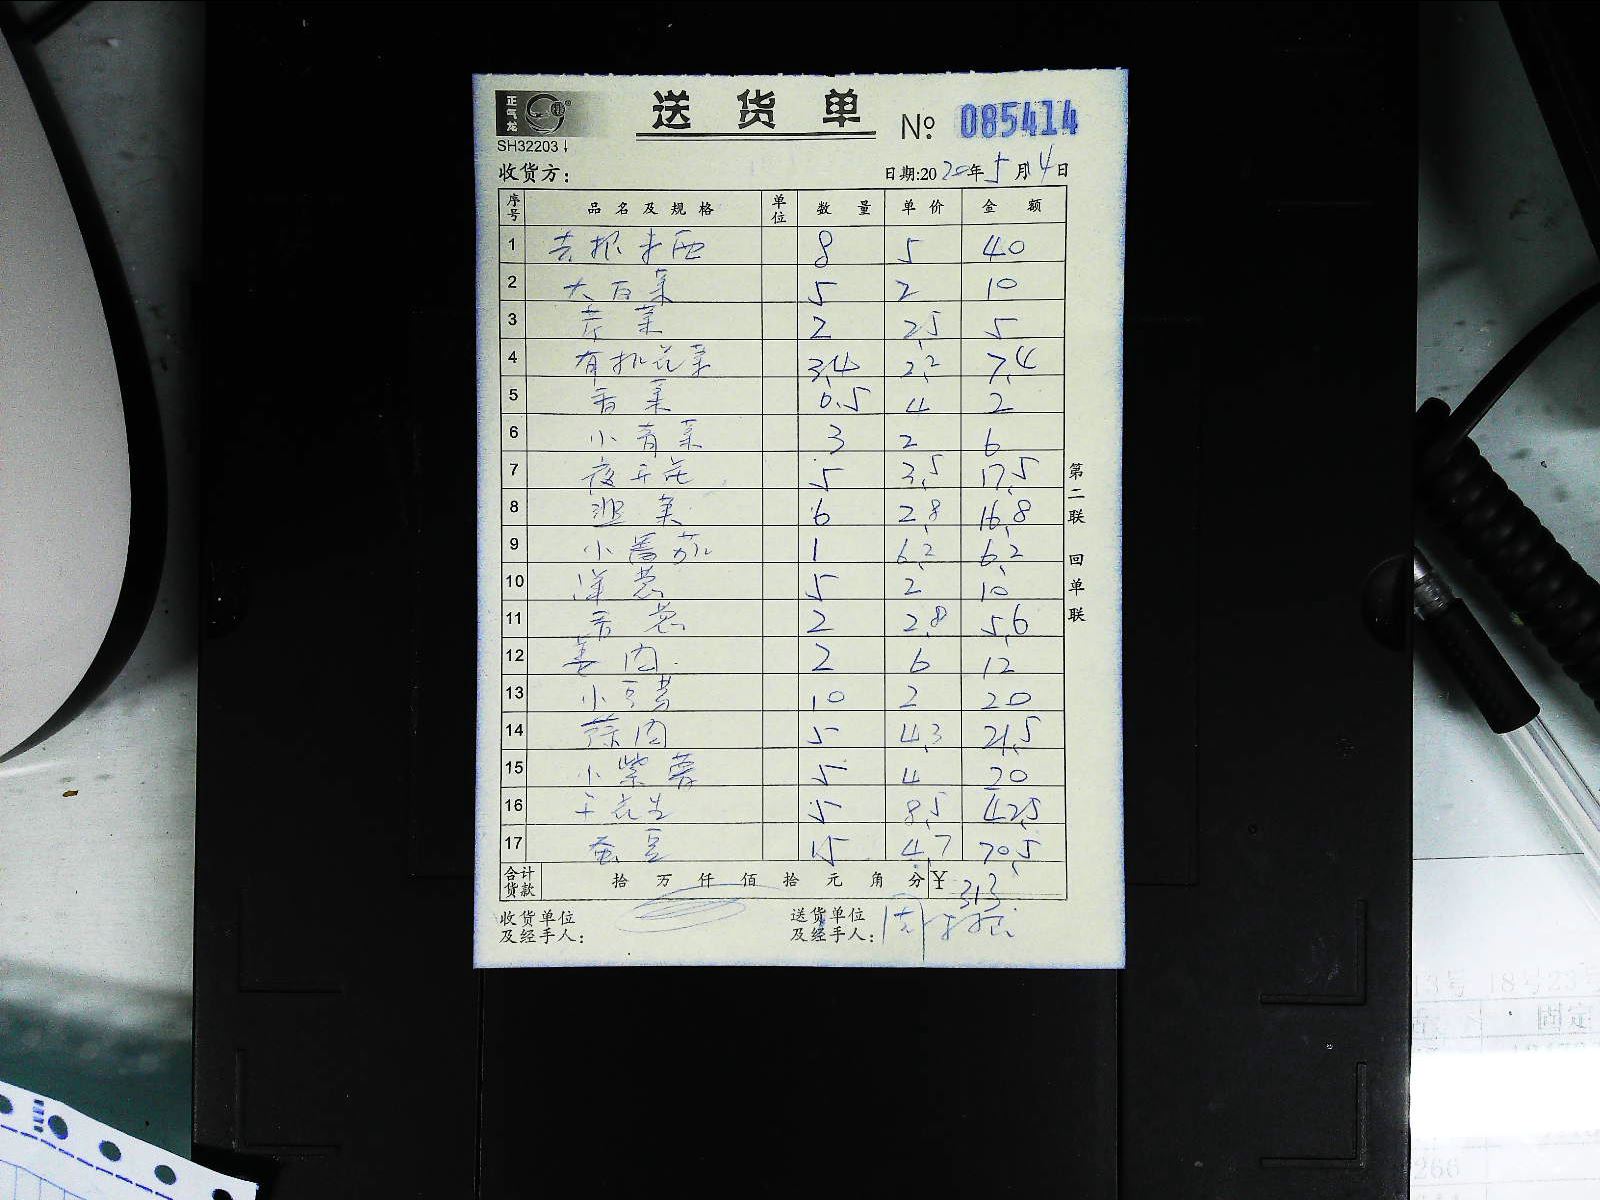 正气龙
送货单 № 085414
SH32203
收货方: 日期:2020年5月4日
序号 品名及规格 单位 数量 单价 金额
1 8 5 40
2 大白菜 5 2 10
3 芹菜 2 2.5 5
4 有机花菜 3.4 2.2 7.4
5 香菜 0.5 4 2
6 小青菜 3 2 6
7 夜开花 5 3.5 17.5
8 韭菜 6 2.8 16.8
9 小蕃茄 1 6.2 6.2
10 洋葱 5 2 10
11 香葱 2 2.8 5.6
12 姜肉 2 6 12
13 小豆 10 2 20
14 蒜肉 5 4.3 21.5
15 小紫薯 5 4 20
16 干花生 5 8.5 42.5
17 蚕豆 15 4.7 70.5
合计货款 拾 万 仟 佰 拾 元 角 分 ¥ 313
收货单位及经手人: 送货单位及经手人: 周
第二联 回单联
13号 18号23号
固定
266